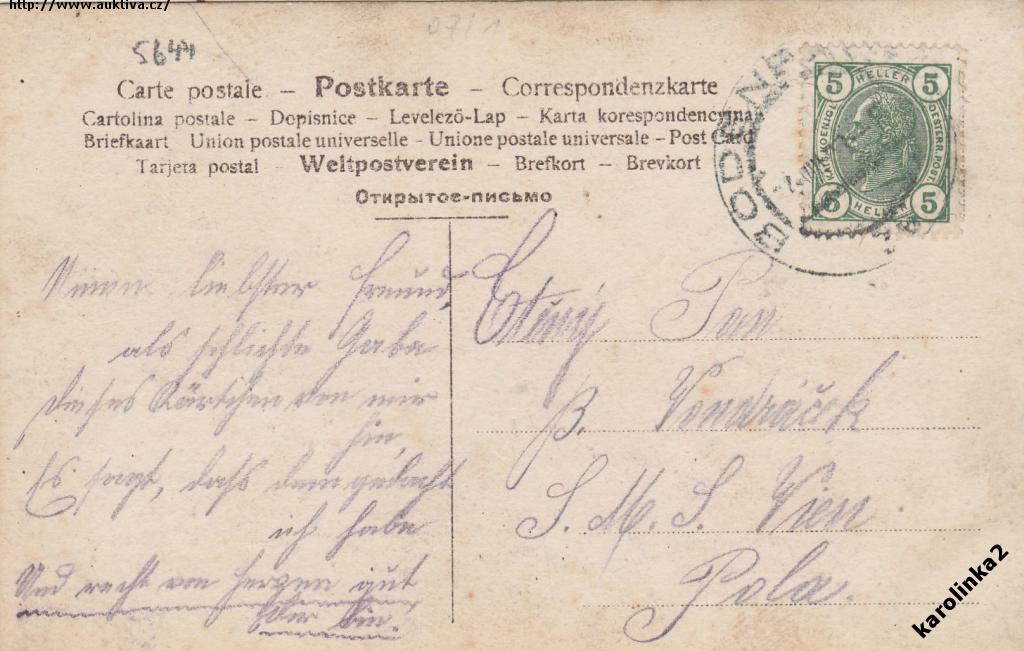 http://www.auktiva.cz/
07/1
5644
Carte postale – Postkarte – Correspondenzkarte
Cartolina postale – Dopisnice – Levelező-Lap – Karta korespondencyjna
Briefkaart – Union postale universelle – Unione postale universale – Post Card
Tarjeta postal – Weltpostverein – Brefkort – Brevkort
Открытое-письмо
5 HELLER 5
KAIS. KOENIGL. OESTERR. POST.
5 HELLER 5
BODENB
Meinen liebster Freund,
als schlichte Gabe
dieses Kärtchen von mir
hin,
Es sagt, dass dein gedacht
ich habe
Und recht von Herzen gut
bin.
Ctěný Pan
B. Vondráček
S. M. S. Wien
Pola.
karolinka2